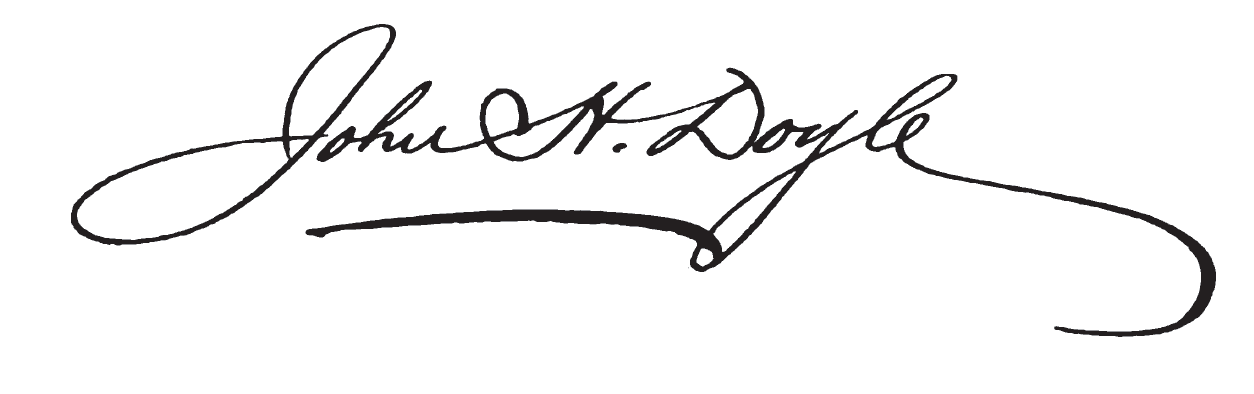 John H. Doyle